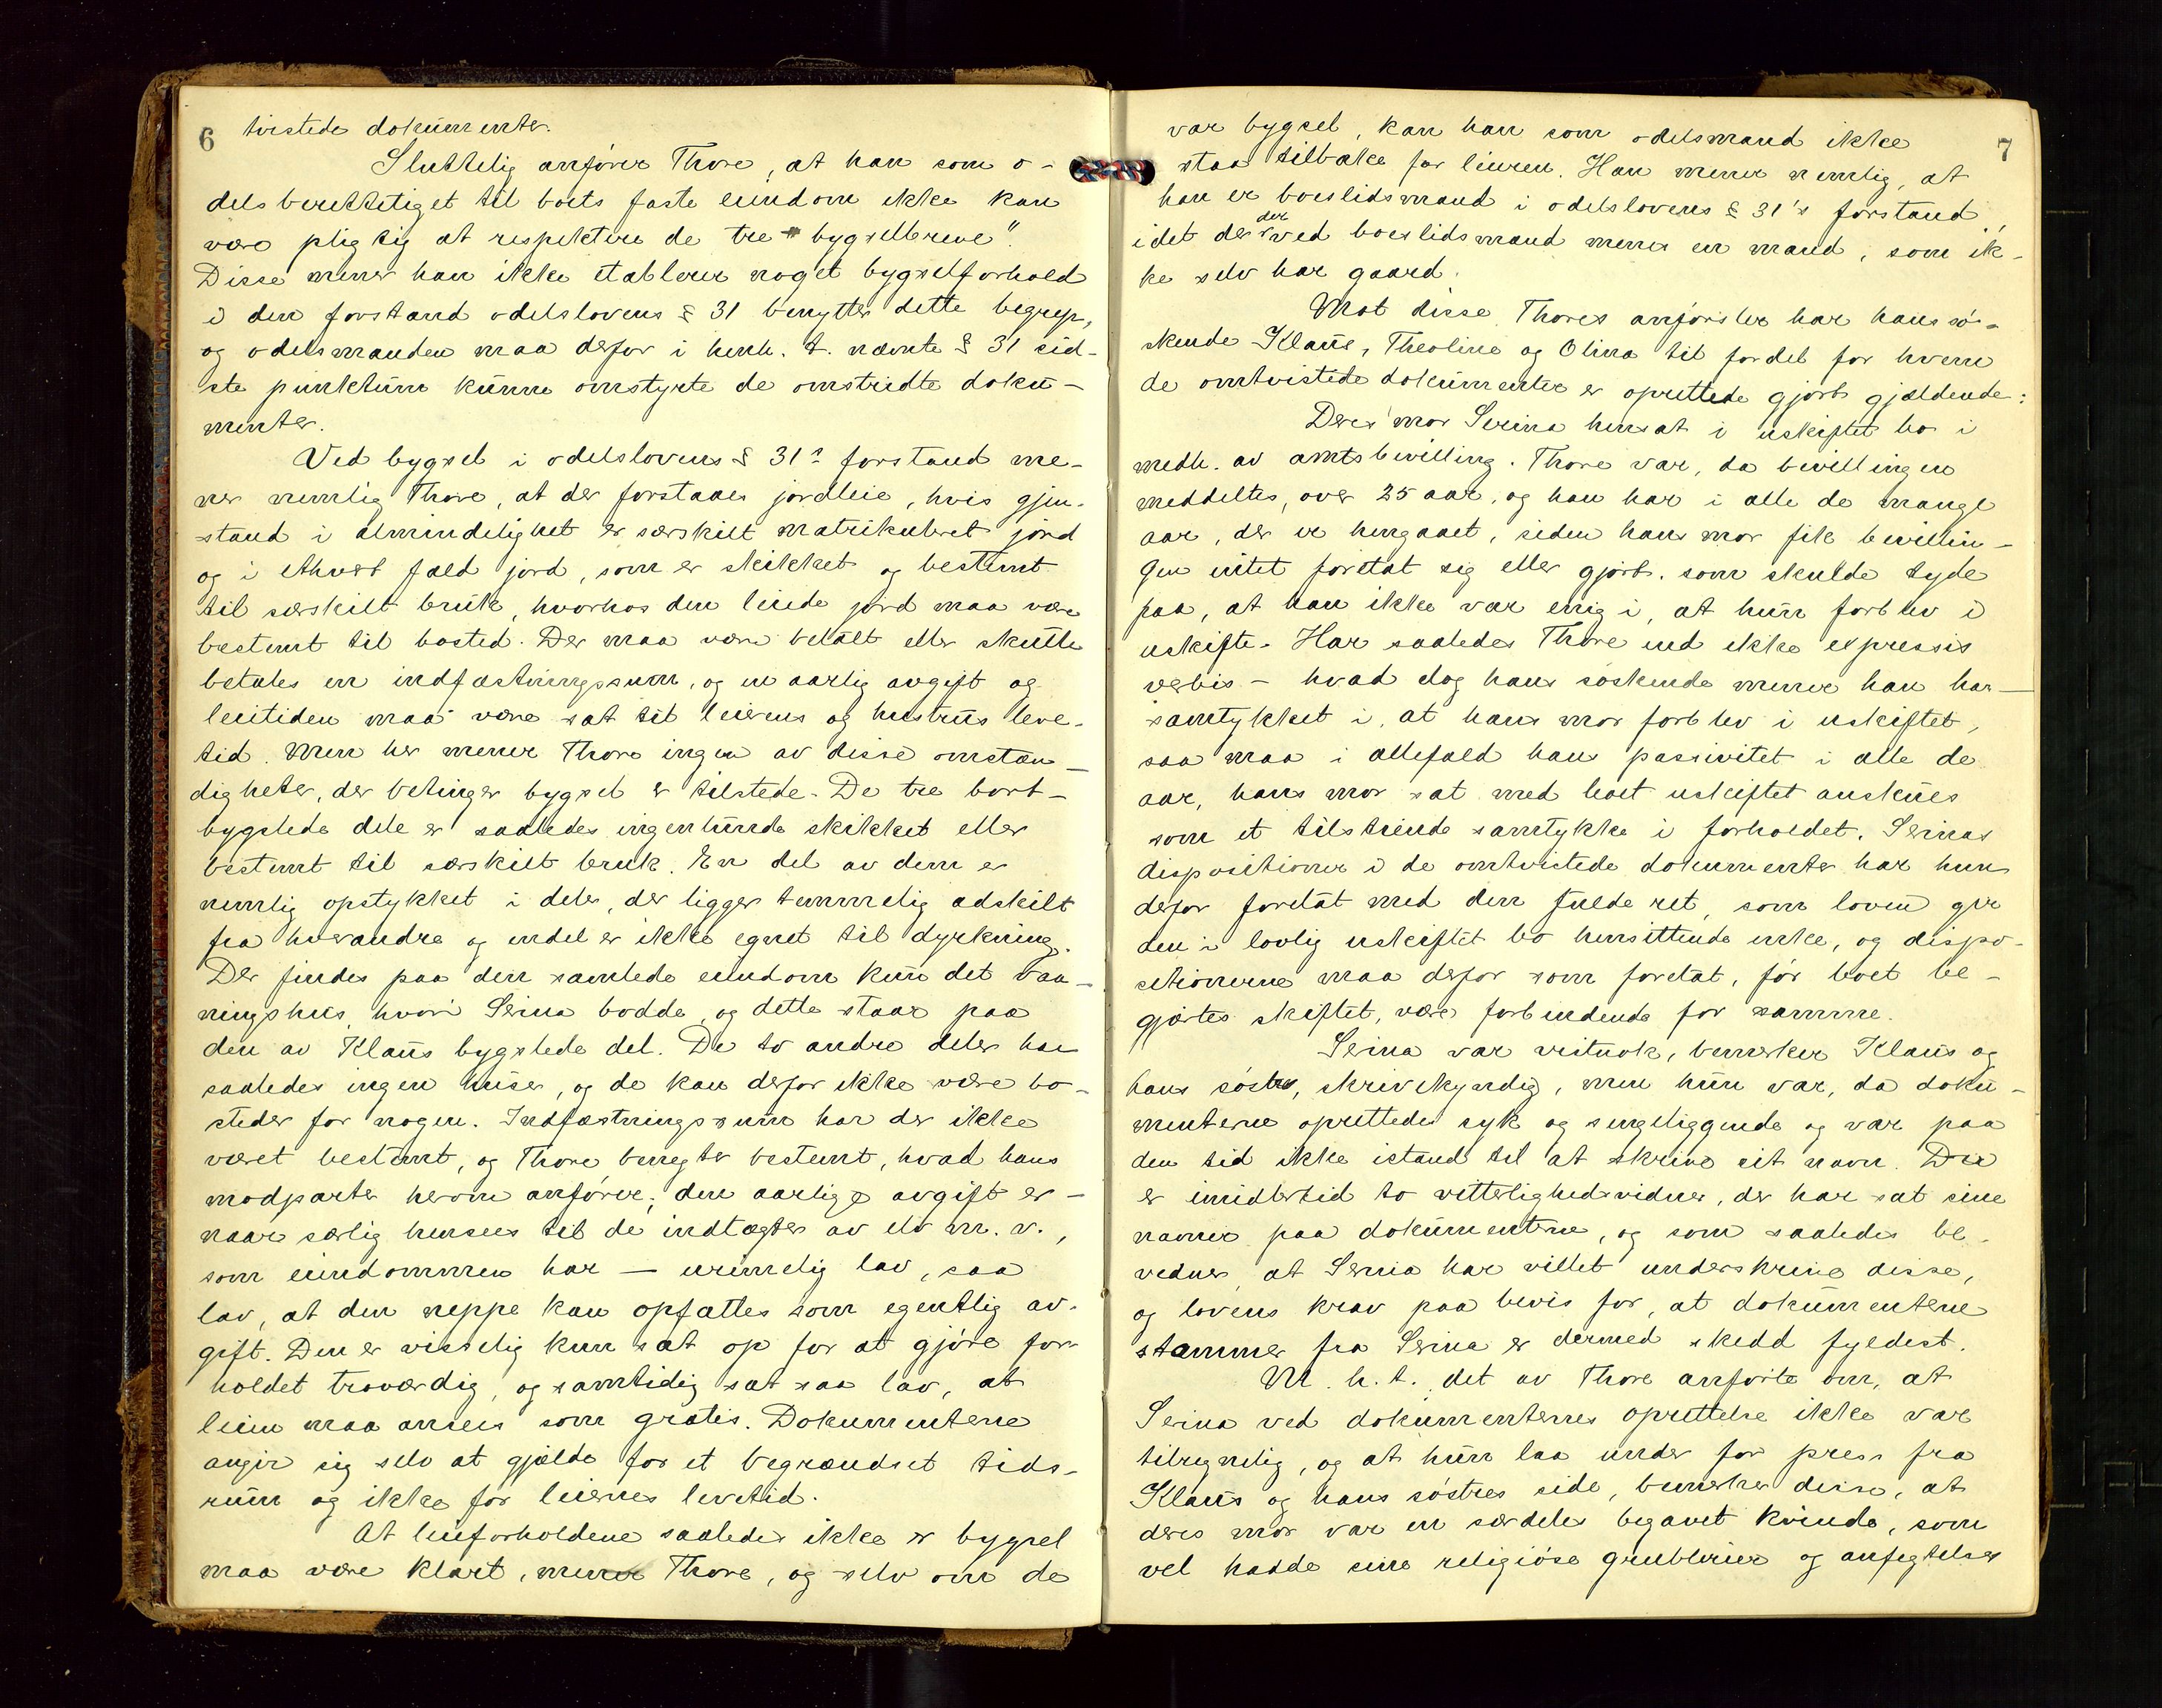 6
tvistede dokumenter.
Sluttelig anfører Thore, at han som o-
delsberettiget til boets faste eiendom ikke kan
være pligtig at respektere de tre "bygselbreve".
Disse mener han ikke etablerer noget bygselforhold
i den forstand odelslovens § 31 benytter dette begrep,
og odelsmanden maa derfor i henh. t. nævnte § 31 sid-
ste punktum kunne omstyrte de omstridte doku-
menter.
Ved bygsel i odelslovens § 31's forstand me-
ner nemlig Thore, at der forstaaes jordleie, hvis gjen-
stand i almindelighet er særskilt matrikuleret jord
og i ethvert fald jord, som er skikket og bestemt
til særskilt bruk, hvorhos den leiede jord maa være
bestemt til bosted. Der maa være betalt eller skulle
betales en indfæstningssum, og en aarlig avgift og
leietiden maa være sat til leierens og hustrus leve-
tid. Men her mener Thore ingen av disse omstæn-
digheter, der betinger bygsel er tilstede. De tre bort-
bygslede dele er saaledes ingenlunde skikket eller
bestemt til særskilt bruk. En del av dem er
nemlig opstykket i deler, der ligger temmelig adskilt
fra hverandre og endel er ikke egnet til dyrkning.
Der findes paa den samlede eiendom kun det vaa-
ningshus, hvori Serina bodde, og dette staar paa
den av Klaus bygslede del. De to andre deler har
saaledes ingen huser, og de kan derfor ikke være bo-
steder for nogen. Indfæstningssum har der ikke
været bestemt, og Thore benegter bestemt, hvad hans
modparter herom anfører; den aarlige avgift er -
naar særlig hensees til de indtægter av elv m. v.,
som eiendommen har — urimelig lav, saa
lav, at den neppe kan opfattes som egentlig av-
gift. Den er visselig kun sat op for at gjøre for-
holdet troværdig, og samtidig sat saa lav, at
leien maa ansees som gratis. Dokumenterne
angir sig selv at gjælde for et begrændset tids-
rum og ikke for leiernes levetid.
At leieforholdene saaledes ikke er bygsel
maa være klart, mener Thore, og selv om de
7
var bygsel, kan han som odelsmand ikke
staa tilbake for leieren. Han mener nemlig, at
han er boeslidsmand i odelslovens § 31's forstand,
der
idet der ved boeslidsmand menes en mand, som ik-
ke selv har gaard.
Mot disse Thores anførsler har hans sø-
skende Klaus, Theoline og Olina til fordel for hvem
de omtvistede dokumenter er oprettede gjort gjældende:
Deres mor Serina hensat i uskiftet bo i
medh. av amtsbevilling. Thore var, da bevillingen
meddeltes, over 25 aar, og han har i alle de mange
aar, der er hengaaet, siden hans mor fik bevillin-
gen intet foretat sig eller gjort, som skulde tyde
paa, at han ikke var enig i, at hun forblev i
uskifte. Har saaledes Thore end ikke expressis
verbis - hvad dog hans søskende mener han har—
samtykket i, at hans mor forblev i uskiftet,
saa maa i allefald hans passivitet i alle de
aar, hans mor sat med boet uskiftet anskues
som et tilstrende samtykke i forholdet. Serinas
dispositioner i de omtvistede dokumenter har hun
derfor foretat med den fulde ret, som loven gir
den i lovlig uskiftet bo hensittende enke, og dispo-
sitionerne maa derfor som foretat, før boet be-
gjærtes skiftet, være forbindende for samme.
Serina var vistnok, bemerker Klaus og
hans søstre, skrivekyndig, men hun var, da doku-
menterne oprettedes syk og sengeliggende og var paa
den tid ikke istand til at skrive sit navn. Der
er imidlertid to vitterlighedsvidner, der har sat sine
navne paa dokumenterne, og som saaledes be-
vidner, at Serina har villet underskrive disse,
og lovens krav paa bevis for, at dokumenterne
stammer fra Serina er dermed skedd fyldest.
M. h. t. det av Thore anførte om, at
Serina ved dokumenternes oprettelse ikke var
tilregnelig, og at hun laa under for press fra
Klaus og hans søstres side, bemerker disse, at
deres mor var en særdeles begavet kvinde, som
vel hadde sine religiøse grublerier og anfegtelser